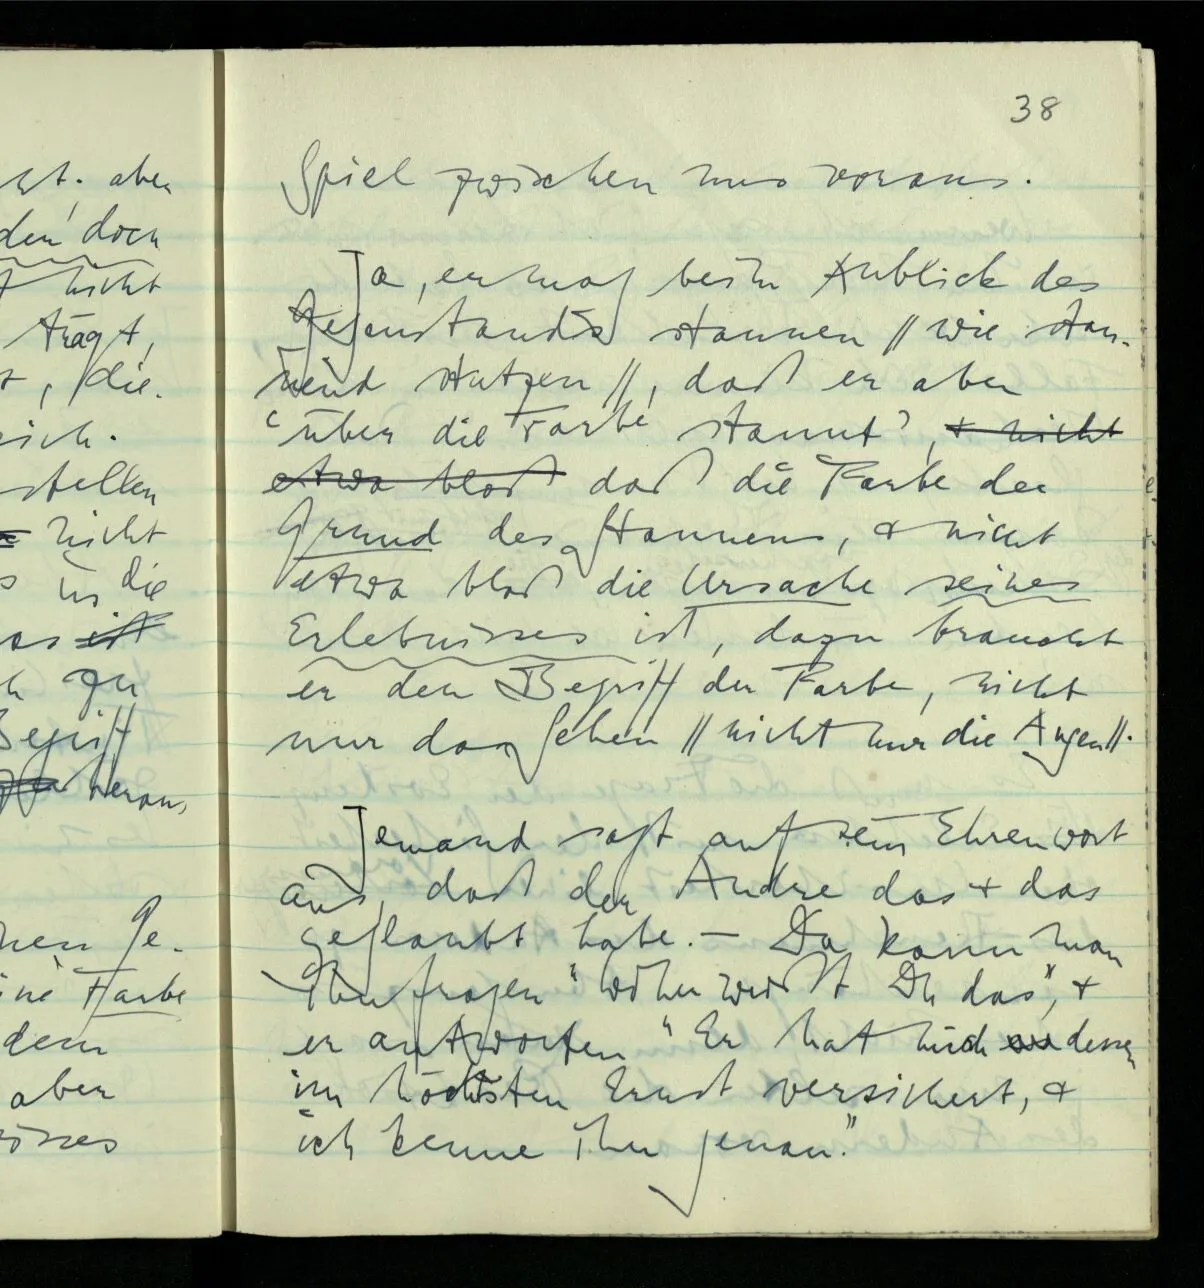 st. aber
den doch
nicht
trägt,
, die
sich.
stellen
nicht
s in die
as ist
h zu
Begriff
heraus,
nen Ge-
ine Farbe
dem
aber
isses
38
Spiel zwischen uns voraus.
Ja, er mag beim Anblick des
Gegenstandes staunen // wie stau-
nend stutzen //, daß er aber
‘über die Farbe staunt’, & nicht
etwa bloß daß die Farbe der
Grund des Staunens, & nicht
etwa bloß die Ursache seines
Erlebnisses ist, dazu braucht
er den Begriff der Farbe, nicht
nur das Sehen // nicht nur die Augen //.
Jemand sagt auf sein Ehrenwort
aus, daß der Andre das & das
geglaubt habe. – Da kann man
ihn fragen "Woher weißt Du das", &
er antworten "Er hat mich dessen
im höchsten Ernst versichert, &
ich kenne ihn genau."